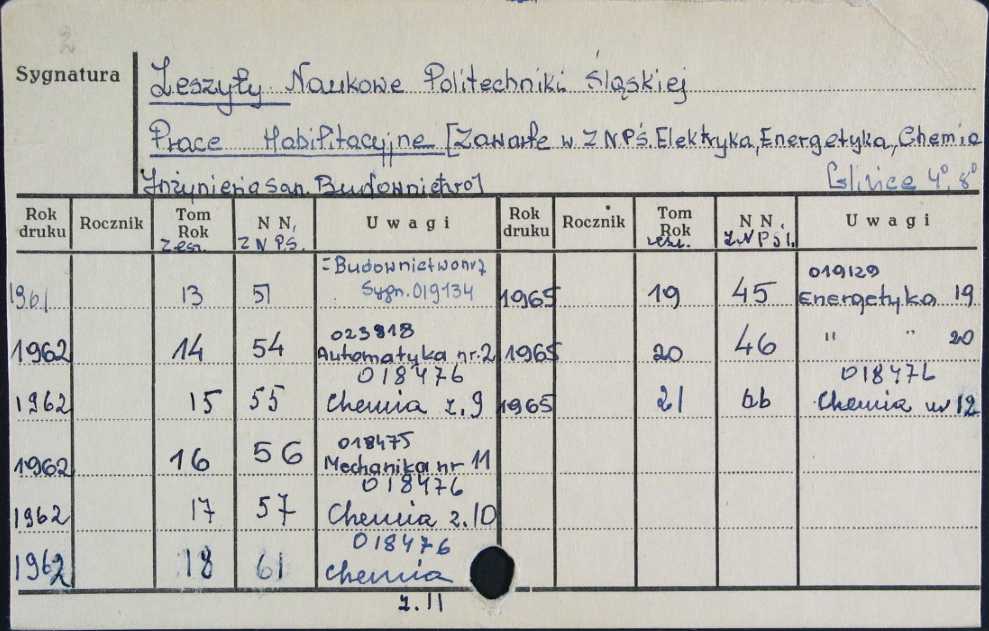 2
Sygnatura
Zeszyty Naukowe Politechniki Śląskiej
Prace Habilitacyjne [Zawarte w Z.N.P.Ś. Elektryka, Energetyka, Chemia
Inżynieria San. Budownictwo]
Gliwice 4°, 8°
Rok druku Rocznik Tom Rok Zesz. N N. Z N P.Ś. Uwagi Rok druku Rocznik Tom Rok zesz. N N. Z N P Śl. Uwagi
1961 13 51 = Budownictwo nr 7 Sygn. 019134 1965 19 45 019129 Energetyka 19
1962 14 54 023818 Automatyka nr. 2 1965 20 46 " " 20
1962 15 55 018476 Chemia z. 9 1965 21 66 018476 Chemia nr 12
1962 16 56 018475 Mechanika nr 11
1962 17 57 018476 Chemia z. 10
1962 18 61 018476 Chemia
z. 11